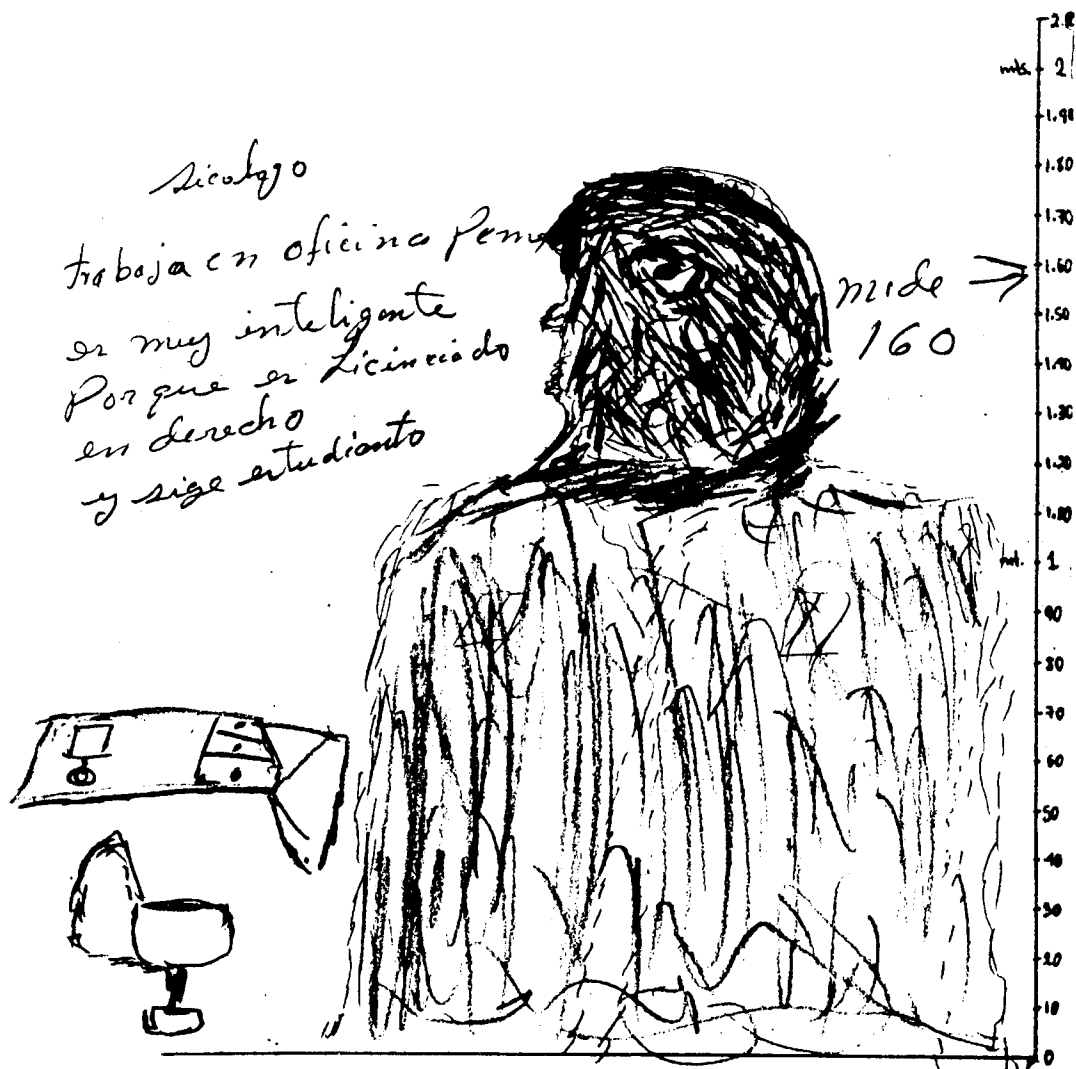 sicologo
trabaja en oficina
es muy inteligente
Por que es Licinciado
en derecho
y sige estudianto
mide
160
mts. 2
1.80
1.70
1.60
1.50
1.40
1.30
1.20
1.10
mt. 1
90
80
70
60
50
40
30
20
10
0